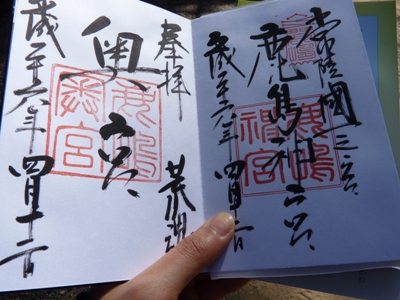 常陸國一之宮
鹿島神宮
歳二十六年四月十二日
鹿嶋
神宮
奉拝
荒魂
奥宮
歳二十六年四月十二日
鹿嶋
奥宮